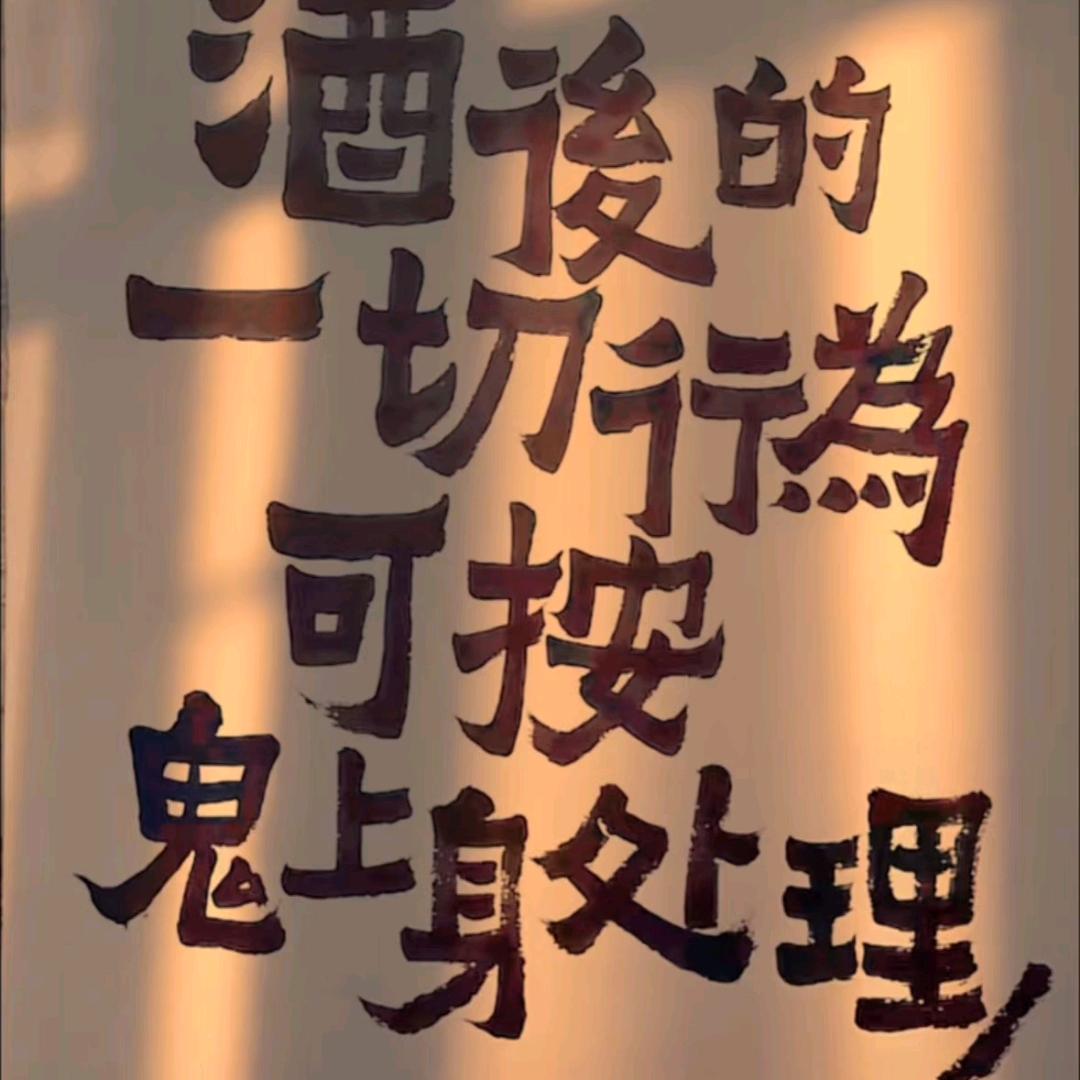 酒後的
一切行為
可按
鬼上身处理